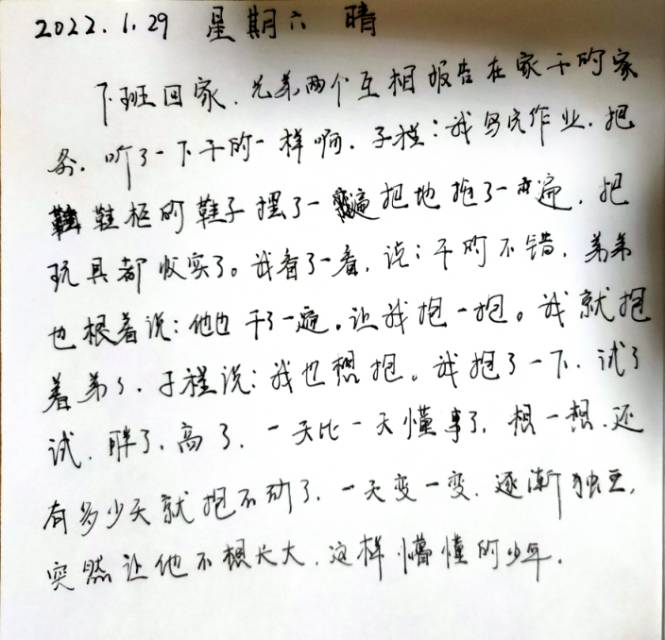 2022.1.29 星期六 晴
下班回家.兄弟两个互相报告在家干的家
务.听了一下干的一样啊.子程:我写完作业.把
鞋柜的鞋子摆了一遍把地拖了一遍.把
玩具都收实了。我看了一看.说:干的不错.弟弟
也根着说:他也干了一遍.让我抱一抱。我就抱
着弟了.子程说:我也想抱。我抱了一下.试了
试.胖了.高了.一天比一天懂事了.想一想.还
有多少天就抱不动了.一天变一变.逐渐独立,
突然让他不想长大.这样懵懂的少年.